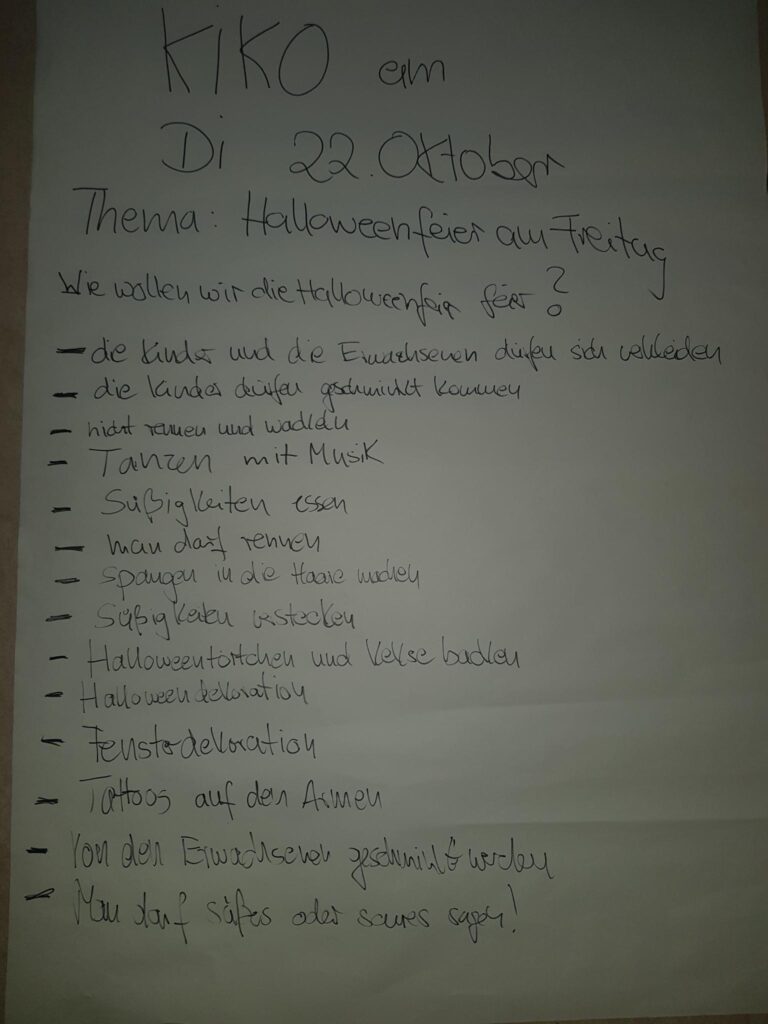 KiKO am
Di 22. Oktober
Thema: Halloweenfeier am Freitag
Wie wollen wir die Halloweenfeir feier?
- die Kinder und die Erwachsenen dürfen sich verkleiden
- die Kinder dürfen geschminkt kommen
- nicht rennen und
- Tanzen mit Musik
- Süßigkeiten essen
- man darf rennen
- Spangen in die Haare machen
- Süßigkeiten verstecken
- Halloweentörtchen und Kekse backen
- Halloweendekoration
- Fensterdekoration
- Tattoos auf den Armen
- Von den Erwachsenen geschminkt werden
- Man darf süßes oder saures sagen!